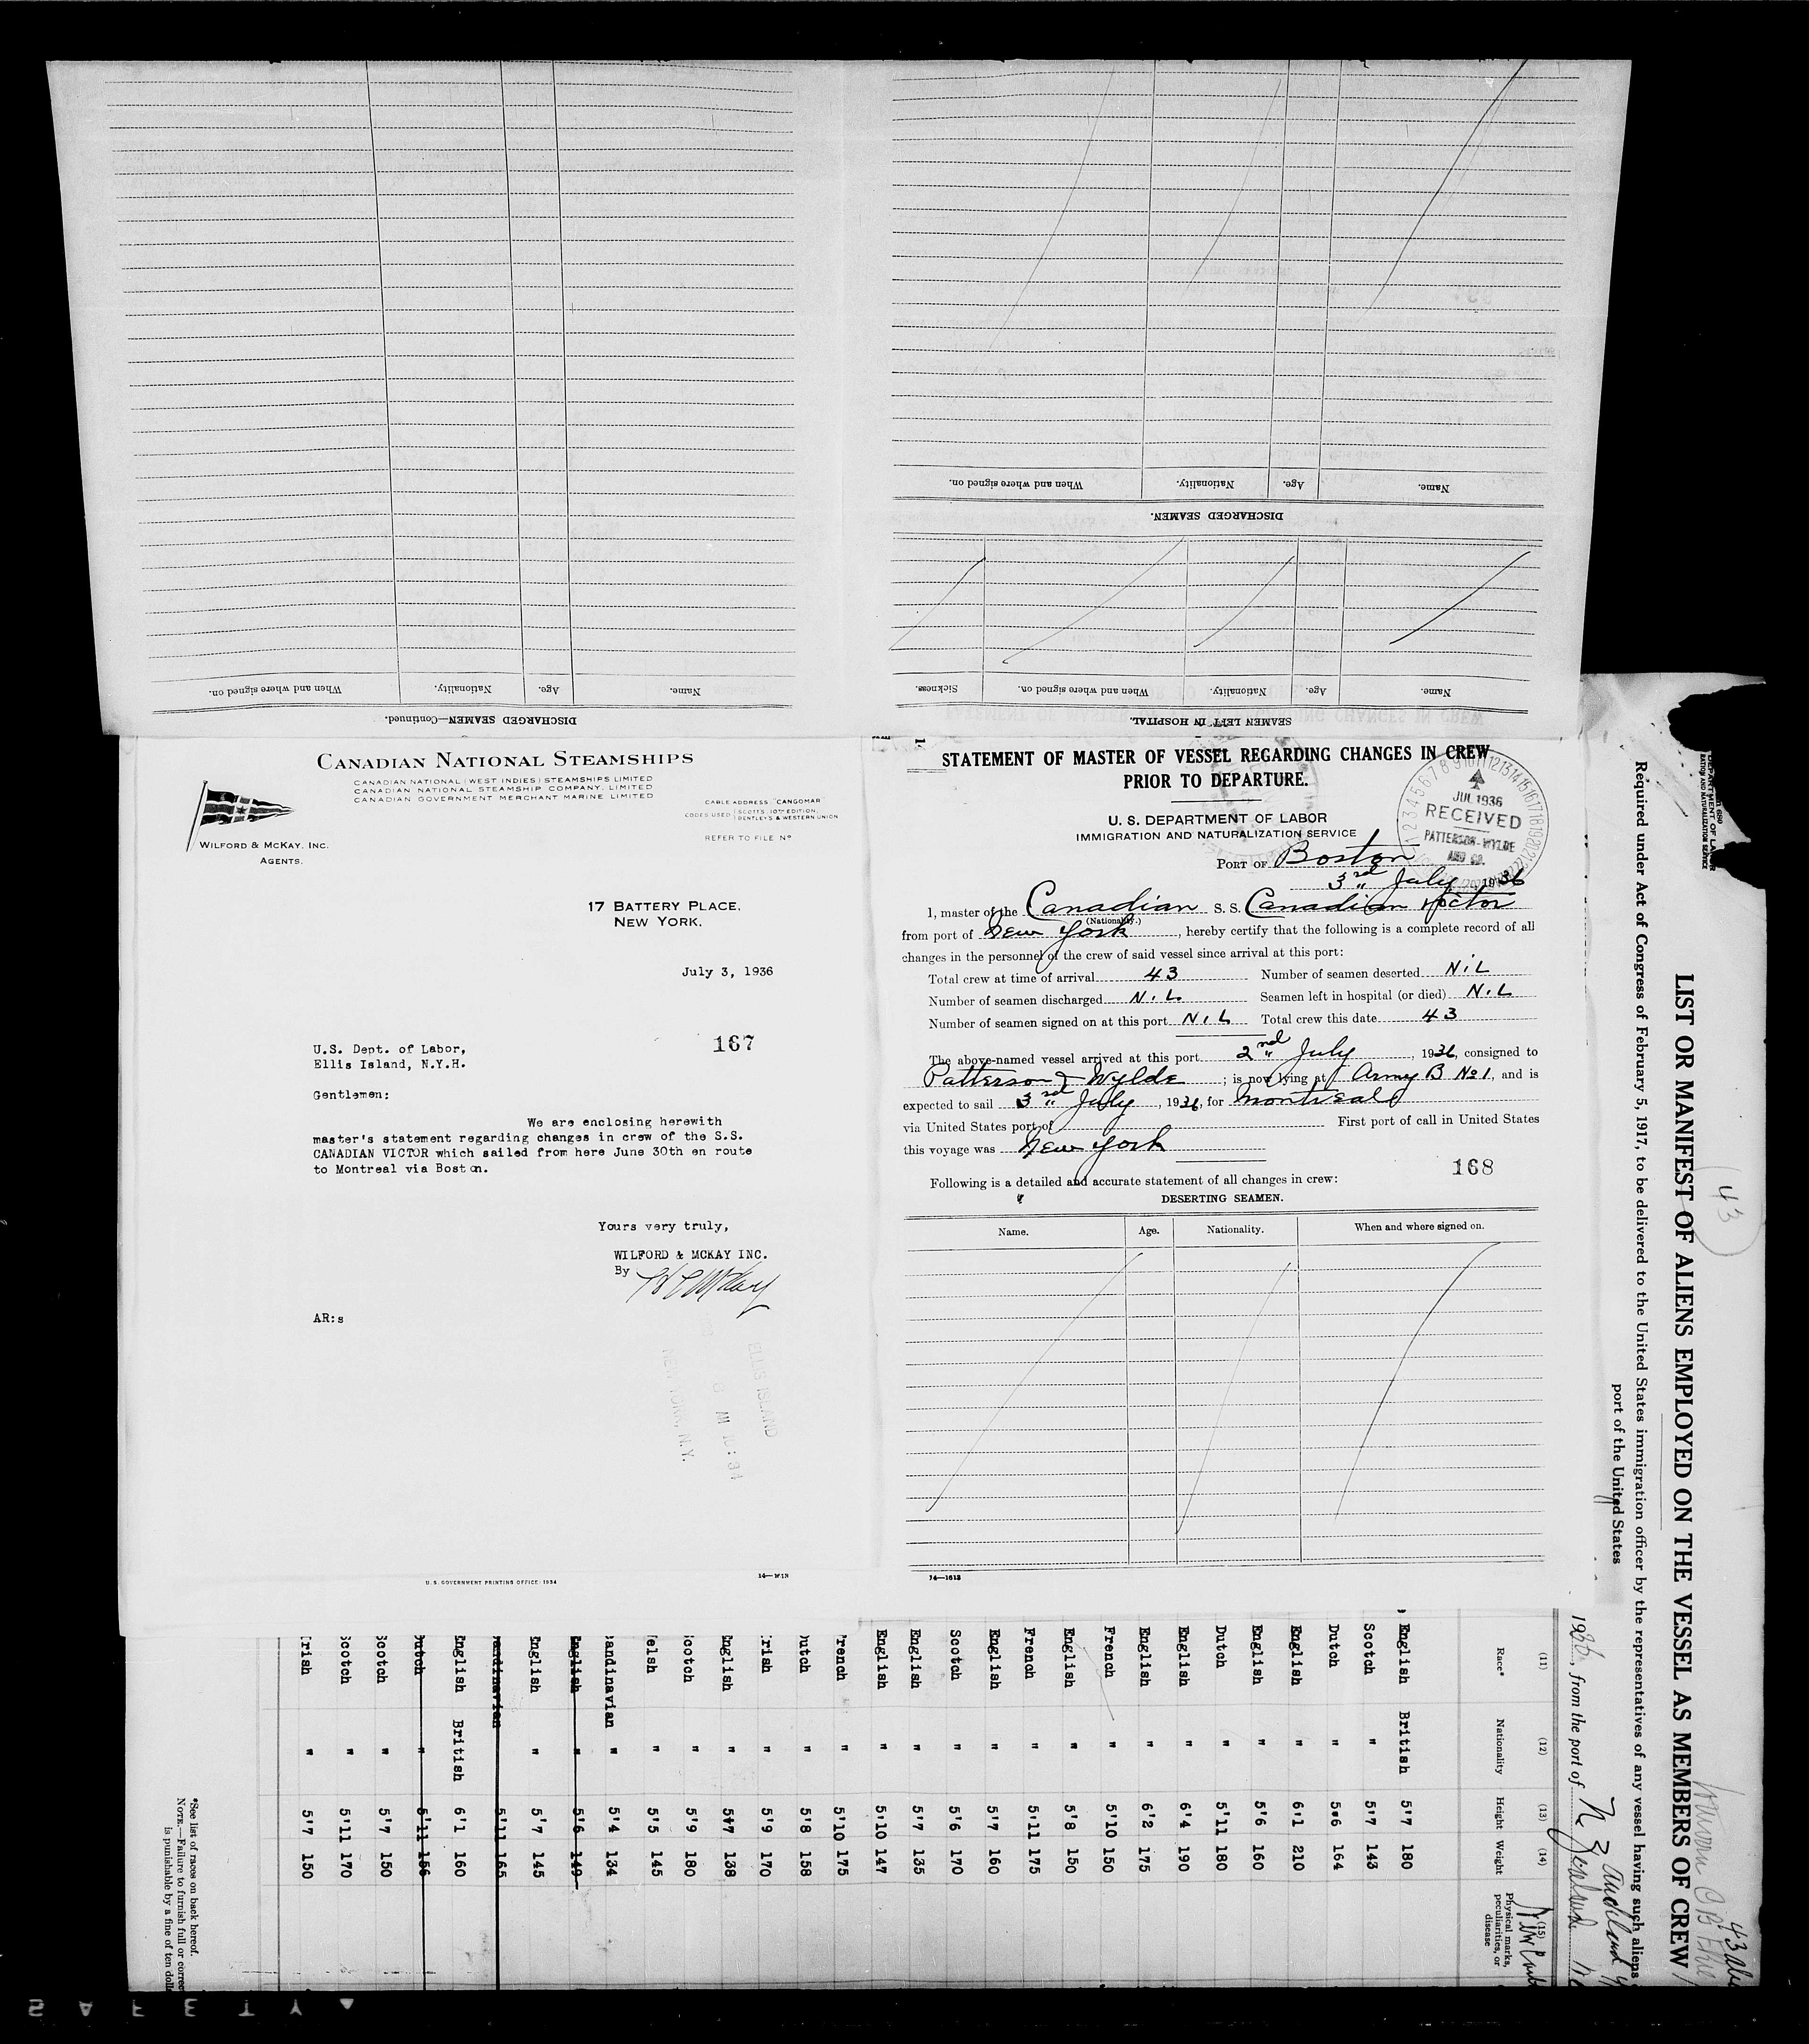 When and where signed on.
Nationality.
Age.
Name.
DISCHARGED SEAMEN.
Sickness.
When and where signed on.
Nationality.
Age.
Name.
SEAMEN LEFT IN HOSPITAL.
When and where signed on.
Nationality.
Age.
Name.
DISCHARGED SEAMEN—Continued.
CANADIAN NATIONAL STEAMSHIPS
CANADIAN NATIONAL (WEST INDIES) STEAMSHIPS LIMITED
CANADIAN NATIONAL STEAMSHIP COMPANY, LIMITED
CANADIAN GOVERNMENT MERCHANT MARINE LIMITED
CABLE ADDRESS "CANGOMAR"
CODES USED SCOTTS 10TH EDITION
BENTLEY'S & WESTERN UNION
REFER TO FILE Nº
WILFORD & MCKAY, INC.
AGENTS.
17 BATTERY PLACE,
NEW YORK.
July 3, 1936
167
U.S. Dept. of Labor,
Ellis Island, N.Y.H.
Gentlemen:
We are enclosing herewith
master's statement regarding changes in crew of the S.S.
CANADIAN VICTOR which sailed from here June 30th en route
to Montreal via Boston.
Yours very truly,
WILFORD & MCKAY INC.
By
AR:s
ELLIS ISLAND
U.S. GOVERNMENT PRINTING OFFICE 1934
STATEMENT OF MASTER OF VESSEL REGARDING CHANGES IN CREW
PRIOR TO DEPARTURE.
JUL 1936
RECEIVED
PATTERSON-WYLDE
AND CO.
U. S. DEPARTMENT OF LABOR
IMMIGRATION AND NATURALIZATION SERVICE
PORT OF Boston
3rd July, 1936
I, master of the Canadian S. S. Canadian Victor
(Nationality.)
from port of New York, hereby certify that the following is a complete record of all
changes in the personnel of the crew of said vessel since arrival at this port:
Total crew at time of arrival 43 Number of seamen deserted NiL
Number of seamen discharged NiL Seamen left in hospital (or died) NiL
Number of seamen signed on at this port NiL Total crew this date 43
The above-named vessel arrived at this port 2nd July, 1936, consigned to
Patterson & Wylde; is now lying at Army B No 1, and is
expected to sail 3rd July, 1936, for Montreal
via United States port of First port of call in United States
this voyage was New York
168
Following is a detailed and accurate statement of all changes in crew:
DESERTING SEAMEN.
Name. Age. Nationality. When and where signed on.
14—1613
LIST OR MANIFEST OF ALIENS EMPLOYED ON THE VESSEL AS MEMBERS OF CREW
Required under Act of Congress of February 5, 1917, to be delivered to the United States immigration officer by the representatives of any vessel having such aliens
port of the United States
43
1936, from the port of
(11) (12) (13) (14) (15)
Race* Nationality Height Weight Physical marks, peculiarities, or disease
English British 5'7 180
Scotch " 5'7 143
Dutch " 5'6 164
English " 6'1 210
English " 5'6 160
Dutch " 5'11 180
English " 6'4 190
English " 6'2 175
French " 5'10 150
English " 5'8 150
French " 5'11 175
English " 5'7 160
Scotch " 5'6 170
English " 5'7 135
English " 5'10 147
French " 5'10 175
utch " 5'8 158
rish " 5'9 170
English " 5'7 138
Scotch " 5'9 180
elsh " 5'5 145
andinavian " 5'4 134
English " 5'6 149
English " 5'7 145
andinavian 5'11 165
English British 6'1 160
utch " 5'11 156
Scotch " 5'7 150
Scotch " 5'11 170
rish " 5'7 150
*See list of races on back hereof.
NOTE.—Failure to furnish full or corre
is punishable by a fine of ten doll
SAFETY